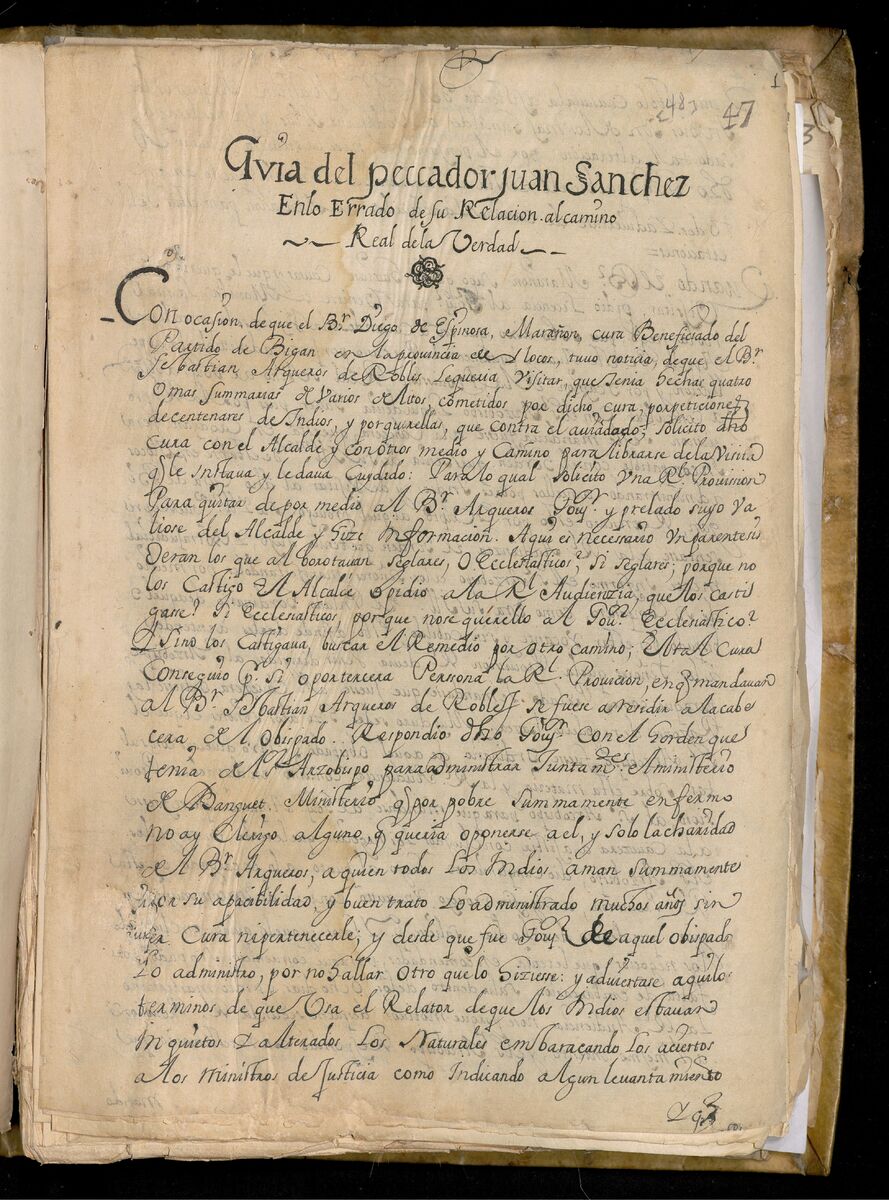 1
48
47
Guia del peccador Juan Sanchez
Enlo Errado de su Relacion. al camino
Real dela Verdad
Con ocasion de que el Br. Diego de Espinosa, Marañon, cura Beneficiado del
Partido de Bigan en la provincia de Ilocos, tuvo noticia, deque el Br.
Sebastian Arqueros de Robles le queria Visitar, que tenia hechas quatro
o mas summarias de Varios delitos, cometidos por dicho cura, por peticiones
de centenares de Indios, y por querellas, que contra el avia dado: solicito dho
cura con el Alcalde y con otros medio y Camino para librarse de la Visita
q̃ le instava y le dava Cuydado: Para lo qual solicito Vna Rl. Provision
Para quitar de por medio al Br. Arqueros Govr. y prelado suyo va
liose del Alcalde y hize Informacion. Aqui es necessario Vn parentesis
Oeran los que alborotavan seglares, O Ecclesiasticos? Si seglares; porque no
los Castigo El Alcalde o pidio a la Rl Audienzia, que los casti
gasse? Si Ecclesiasticos, porque no se querello al Govr. Ecclesiastico?
Y Sino los Castigava, buscar el Remedio por otro camino; Este tal Cura
Consiguio pr. si o por tercera Persona la Rl. Provicion, en q̃ mandavan
al Br. Sebastian Arqueros de Robles se fuese a residir a la cabe
cera del obispado. Respondio dho Govr. con el Gorden que
tenia del Sr Arzobispo para administrar Juntamte. el ministerio
de Banguet Ministerio q̃ por pobre summamente enfermo
no ay Clerigo alguno, q̃ queria oponerse a el, y solo la charidad
del Br. Arqueros, a quien todos los Indios aman summamente
por su apacibilidad, y buen trato lo administrado muchos años sin
ser Cura ni pertenecerle; y desde que fue Govr de aquel obispado
Lo administro, por no hallar otro que lo hiziesse: y adviertase aqui los
terminos de que Usa el Relator de que los Indios estavan
Inquietos y alterados Los Naturales embaracando los aciertos
a los ministros de Justicia como Indicando algun levantamiento
Y q̃